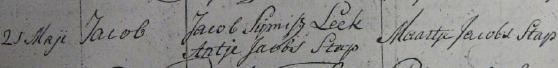 21 Maji Jacob Jacob Sijmisz Leek Maartje Jacobs Stap
Antje Jacobs Stap